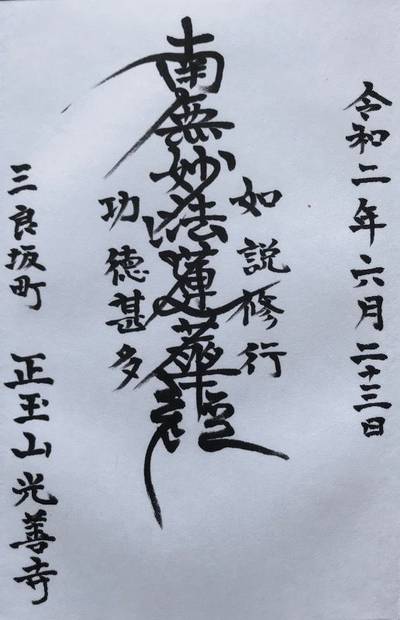 令和二年六月二十三日
如説修行
南無妙法蓮華経
功徳甚多
三良坂町 正玉山光善寺